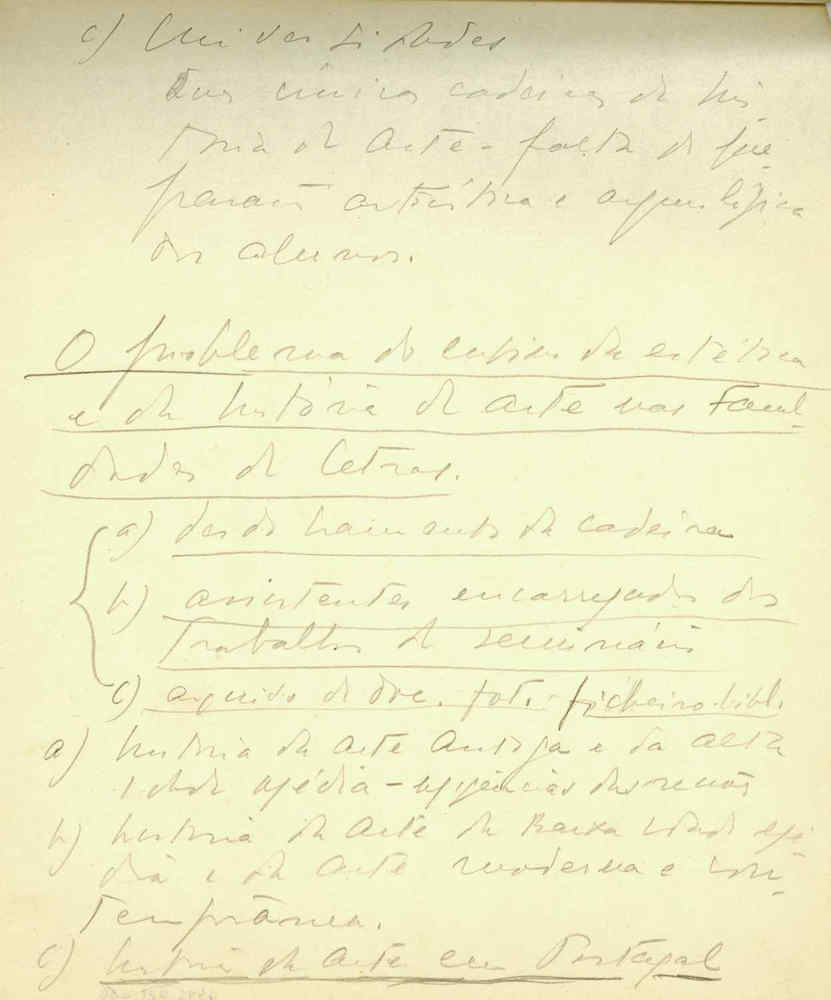 c) Universidades
Duas únicas cadeiras de his-
tória de arte - falta de pre-
paração artística e arqueológica
dos alunos.
O problema do ensino da estética
e da história de arte nas Facul-
dades de Letras.
a) desdobramento da cadeira
b) assistentes encarregados dos
trabalhos de seminário
c) arquivo de doc. fot. ficheiro bibl.
a) história da arte antiga e da alta
idade média -
b) história da arte da Baixa idade mé
dia e da arte moderna e con-
temporânea.
c) história da arte em Portugal